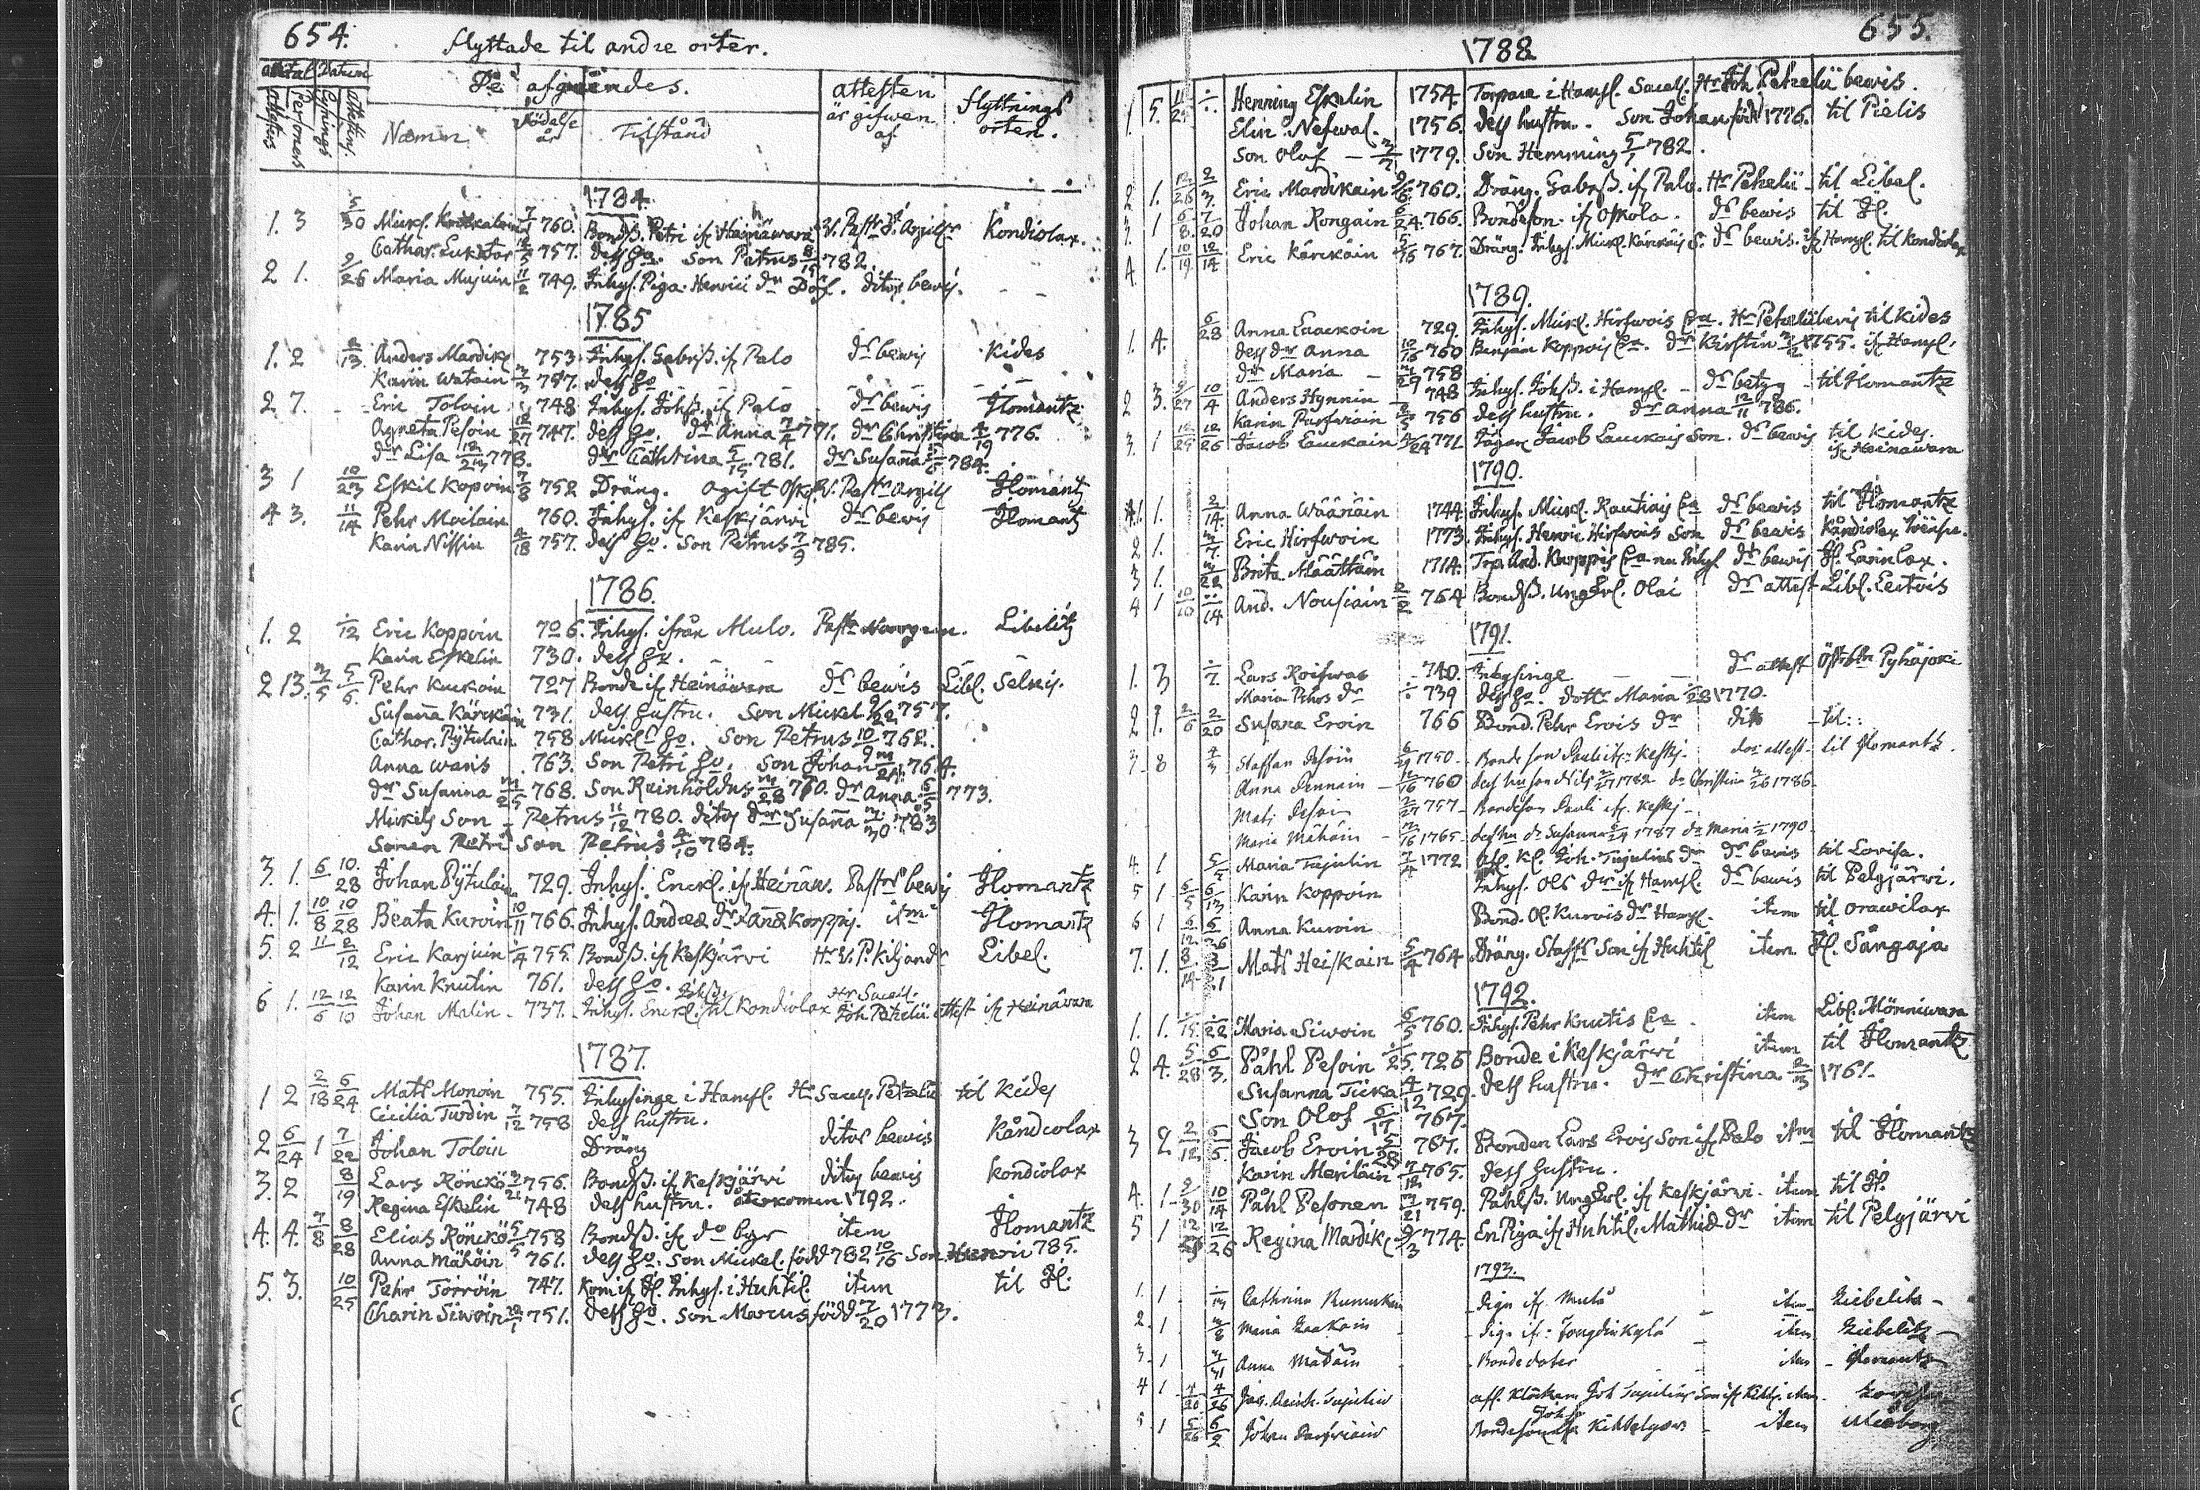 654.
flyttade til andre orter.
attestus Personers Datum
De afgåendes.
attesten är gifwen af
flyttnings orten.
Namn
födelse år
Tilstånd
1784.
1. 3 5/30 Mick. 7/ 760. Bondß. Petri if Heinäwara Kondiolax.
Cathar. 757. deß Hu. Son Petrus 8/19 782.
2 1. 2/26 Maria Mujuin 11/2 749. Inhys. Piga Henrici dr ditos bewis.
1785
1. 2 2/13 Anders Mardik 753 Inhys. Gabrß. if Palo dr bewis Kides
Karin Watain 3/3 757. deß Hu
2. 7. Eric Toloin 748 Inhys. Johß. if Palo dr bewis Ilomantz
Agneta Pesoin 12/27 747. deß Hu dr Anna 771. dr Christina 4/19 776.
dr Lisa 778. dr Cathrina 781. dr Susana 784.
3 1 10/23 Eskil Kopoin 7/8 752 Dräng. ogift Ilomantz
4 3. 11/14 Pehr Moilain 760. Inhys. if Keskjärvi dr bewis Ilomantz
Karin Nissin 2/18 757. deß Hu. Son Petrus 7/9 785.
1786.
1. 2 1/12 Eric Koppoin 706. Inhys. ifrån Mulo. Past. Libelitz
Karin Eskelin 730. deß Hu.
2 13. 3/5 5/6 Pehr Kuckoin 727 Bonde if Heinäwara dr bewis Libl. Selkis.
Susana Kärckäin 731. deß hustru. Son Mickel 757.
Cathar. Pytulain 758 Mickls Hu. Son Petrus 10/9 762.
Anna Waris 763. Son Petri Hu. Son Johan 764.
dr Susanna 768. Son Reinholdus 3/28 770. dr Anna 5/5 773.
Mickels Son - Petrus 11/12 780. ditos dr Susana 3/30 783
Sonen Petri Son Petrus 4/10 784.
3. 1. 6 10/28 Johan Pytulain 729. Inhys. Enckl. if Heinäw. Pastrs bewis Ilomantz
4. 1. 10/8 10/28 Beata Kuroin 10/11 766. Inhys. Andreæ dr item Ilomantz
5. 2 11 2/12 Eric Karjuin 1/4 755. Bondß. if Keskjärvi Hr V. P. Kiljandr Libel.
Karin Knutin 761. deß Hu.
6 1. 12/6 12/10 Johan Malin 737. Inhys. Enckl. til Kondiolax Hr Sacell. Joh. Petrelii attest if Heinäwara
1787.
1 2 2/18 6/24 Mats Monoin 755. Inhysinge i Hamsl. Hr Sacell. Petrelii til Kides
Cicilia Turdin 7/12 758 deß hustru.
2 6/24 1 7/22 Johan Toloin Dräng ditos bewis Kåndiolax
3. 2 8/19 Lars Rönckö 756. Bondß. if Keskjärvi ditos bewis Kondiolax
Regina Eskelin 748 deß hustru. återkomen 1792.
4. 4. 7/8 8/28 Elias Rönckö 5/5 758 Bondß. if do byr item Ilomantz
Anna Mähöin 761. deß Hu. Son Mickel. född 782 10/16 Son Henric 785.
5. 3. 10/25 Pehr Törröin 747. Kom if Il. Inhys. i Huhtil. item til Il.
Charin Siwoin 751. deß Hu. Son Marcus född 7/20 1773.
655.
1788
1. 5. 1/29 Henning Eskelin 1754. Torpare i Hamsl. Sacell. Hr Joh Petrelii bewis.
Elin Nefwal. 1756. deß hustru. Son Johan född 1776. til Pielis
Son Olof 1779. Son Hemming 5/1 782.
2. 1. 12/26 2/3. Eric Mardikain 760. Dräng. Gabrß. if Palo. Hr Petrelii til Libel.
3. 1 6/8. 7/20 Johan Rongain 6/24 766. Bondeson. if Oskola. dr bewis til Il.
4. 1. 10/19 12/14 Eric Kärckäin 5/15 767. Dräng. Inhys. Mickl. Kärckäis S. dr bewis. if Hamsl. til Kondiolax
1789.
1. 4. 6/28 Anna Lauckoin 729. Inhys. Mickl. Hirfwois Ea. Hr Petrelii bewis til Kides
deß dr Anna 760 Benjam Koppois Ea. dr Kirstin 755. if Hamsl.
dr Maria 3/29 758
2 3. 9/27 10/4 Anders Hynnin 748 Inhys. Johß. i Hamsl. dr betyg til Ilomantz
Karin Parfwiain 756 deß hustru. dr Anna 12/11 786.
3. 1 12/25 12/26 Jacob Lauckain 771 Jägar Jacob Lauckais Son. dr bewis til Kides. if Heinäwara
1790.
1. 1. 2/14. Anna Wääräin 1744. Inhys. Mickl. Rautiais Ea dr bewis til Ilomantz
2 1. 3/7. Eric Hirfwoin 1773. Inhys. Henric Hirfwois Son dr bewis Kåndiolax
3 1. 3/22 Brita Määttäin 1714. Trp. And. Koppois Ea nu Inhys dr bewis Il.
4 1 10/10 11/14 And. Nousiain 2/2 764 Bondß. Ungkrl. Olai dr attest Libl.
1791.
1. 3 1/7. Lars Koifwas 740. Inhysinge dr attest Östrbtn Pyhäjoki
Maria Pehrs dr 739 deß Hu. dottr Maria 1770.
2 1. 2/6 2/20 Susana Eroin 766 Bond. Pehr Erois dr dito til
3. 8 4/3 Staffan Pesoin 1750 Bonde son Pauli if Keskj. dor attest til Ilomantz.
Anna Pennain 12/16 760 deß hu son Nils 1782 do Christin 1786
Mats Pesoin 757 Bondeson Pauli if. Keskj
Maria Mähöin /16 1765 deß hu dr Susanna 1787 do Maria 1790
4. 1 5/5 Maria Tujulin 7/4 1772 Afl. Kl. Joh. Tujulius dr dr bewis til Lovisa.
5 1 6/5 6/13 Karin Koppoin Inhys. Ols dr if Hamsl. dr bewis til Pelgjärvi.
6 1 6/12 6/26 Anna Kuroin Bond. Ol. Kurois dr Hamsl. item til Orawilax
7. 1. 8/14 8/21 Mats Heiskain 5/4 764 Dräng. Staffs Son if Huhtil item Il. Sångaja
1792.
1. 1. 1/15 1/22 Maria Siwoin 6/5 760. Inhys. Pehr Knutis Ea item Libl. Mönniwara
2 4. 5/28 6/3. Påhl Pesoin 1/25 726 Bonde i Keskjärvi item til Ilomantz
Susanna Ticka 4/12 729. deß hustru. dr Christina 2/3 1761.
Son Olof 6/17 767.
3 2 2/12 6/6. Jacob Eroin 5/28 767. Bonden Lars Erois Son if Palo item til Ilomantz
Karin Meriläin 7/12 765. deß hustru.
4. 1 9/30 10/14 Påhl Pesonen 3/21 759. Påhlß. Ungkrl. if Keskjärvi item til Il.
5 1 12/ 12/26 Regina Mardik. 9/3 774. En Piga if Huhtil. Mathiæ dr item til Pelgjärvi
1793.
1. 1 Cathrina Piga if Mulo item Liebelits
2. 1 3/8 Maria Laakain Piga if item Liebelits
3. 1 Anna Määtäin Bonde doter item Ilomants
4 1 4/20 4/26 Jac. Reinh. Tujulin aff. Klåckare Joh Tujulius Son if item
5 1 5/26 6/2 Johan Parfwiain Bondeson item Uleåborg